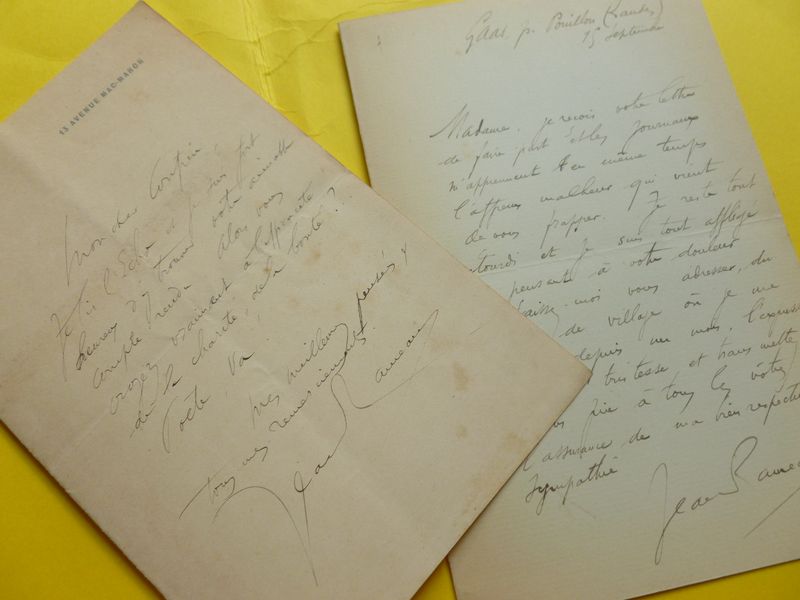 13 AVENUE MAC-MAHON
Mon cher Confrère,
Je lis l'Écho et je suis fort
heureux d'y trouver votre aimable
compte rendu. Alors vous
croyez vraiment à l'approche
de la charité, de la bonté ?
Poète, va !
Mes meilleures pensées &
tous mes remerciements.
Jean Rameau
Gaas, p. Pouillon (Landes)
15 septembre
Madame, je reçois votre lettre
de faire part et les journaux
m'apprennent en même temps
l'affreux malheur qui vient
de vous frapper. Je reste tout
étourdi et je suis tout affligé
pensant à votre douleur
moi vous adresser, du
de village où je me
depuis un mois, l'expression
tristesse et transmettre
prie à tous les vôtres
l'assurance de ma bien respectueuse
sympathie
Jean Rameau